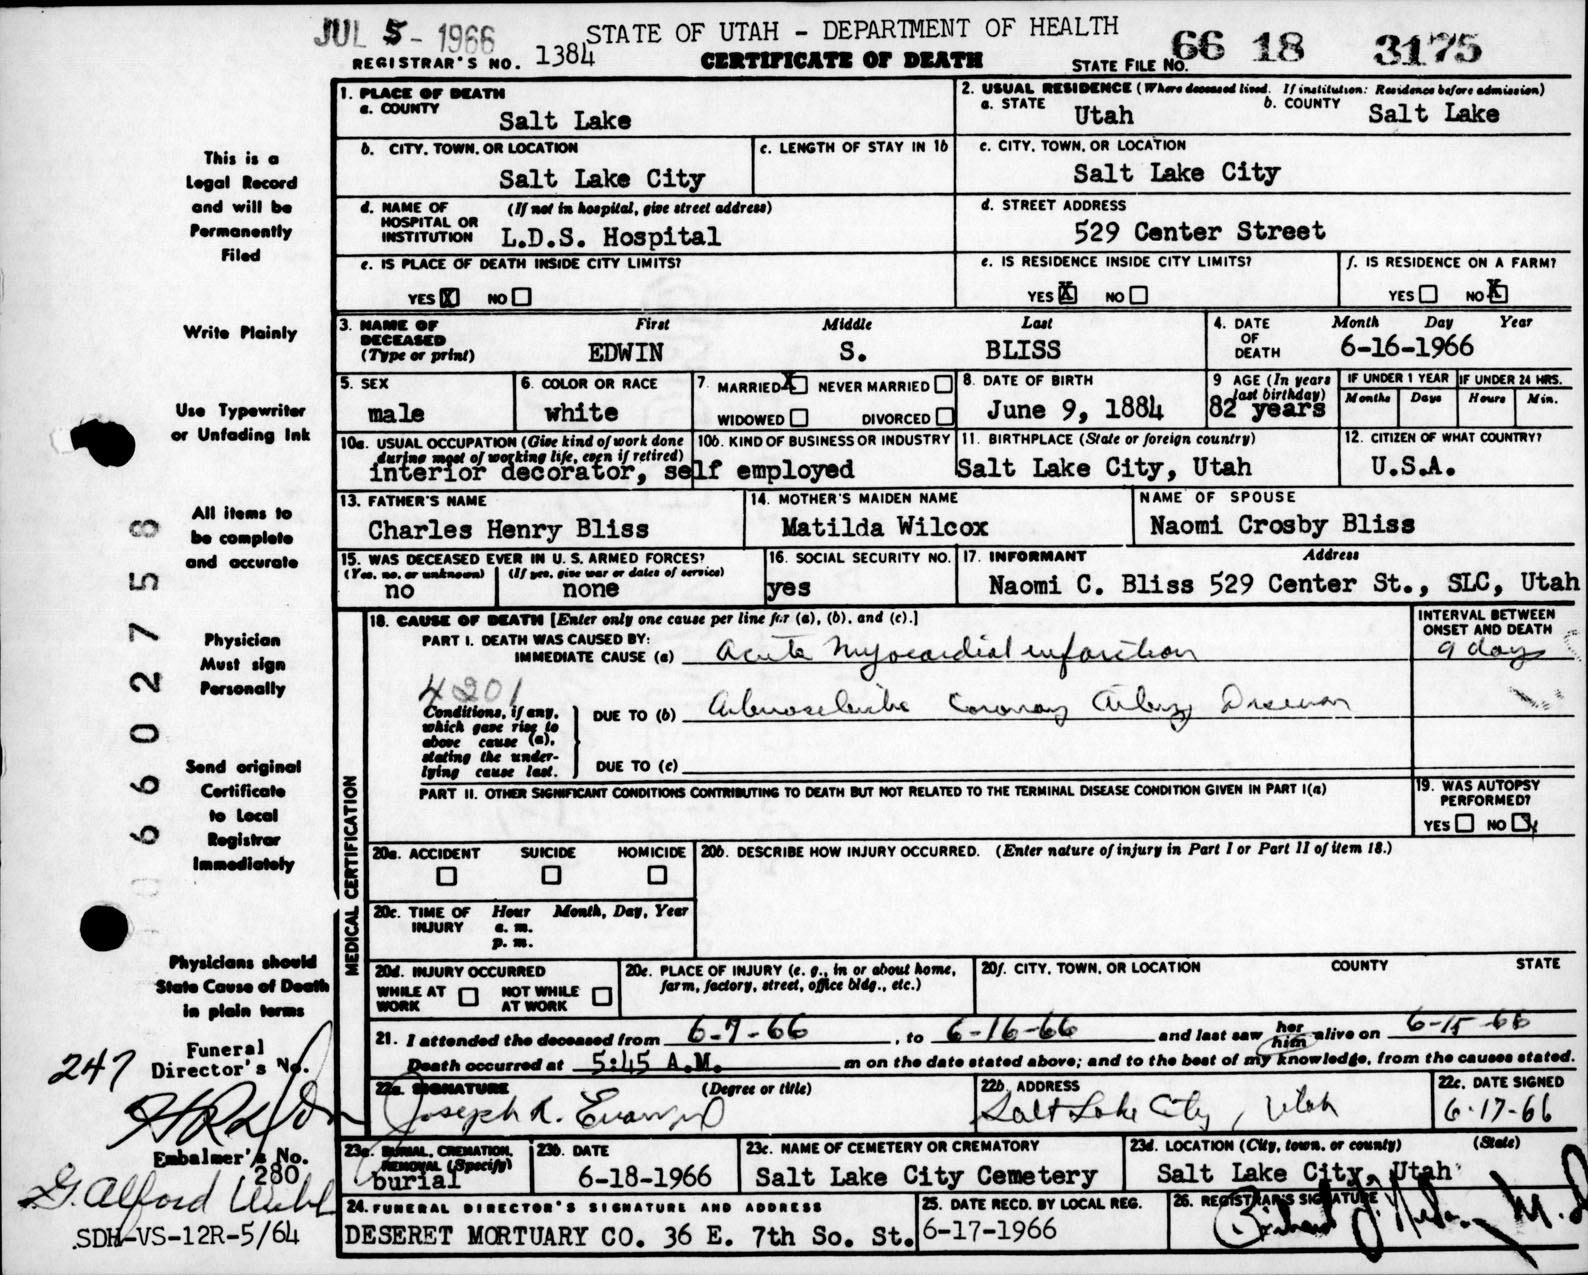 JUL 5 - 1966
STATE OF UTAH - DEPARTMENT OF HEALTH
REGISTRAR'S NO. 1384
CERTIFICATE OF DEATH
STATE FILE NO. 66 18 3175
This is a
Legal Record
and will be
Permanently
Filed
Write Plainly
Use Typewriter
or Unfading Ink
All items to
be complete
and accurate
Physician
Must sign
Personally
Send original
Certificate
to Local
Registrar
Immediately
Physicians should
State Cause of Death
in plain terms
6602758
1. PLACE OF DEATH
a. COUNTY
Salt Lake
2. USUAL RESIDENCE (Where deceased lived. If institution: Residence before admission)
a. STATE Utah
b. COUNTY Salt Lake
b. CITY, TOWN, OR LOCATION
Salt Lake City
c. LENGTH OF STAY IN 1b
c. CITY, TOWN, OR LOCATION
Salt Lake City
d. NAME OF HOSPITAL OR INSTITUTION (If not in hospital, give street address)
L.D.S. Hospital
d. STREET ADDRESS
529 Center Street
e. IS PLACE OF DEATH INSIDE CITY LIMITS?
YES X NO
e. IS RESIDENCE INSIDE CITY LIMITS?
YES X NO
f. IS RESIDENCE ON A FARM?
YES NO X
3. NAME OF DECEASED (Type or print)
First Middle Last
EDWIN S. BLISS
4. DATE OF DEATH
Month Day Year
6-16-1966
5. SEX
male
6. COLOR OR RACE
white
7. MARRIED X NEVER MARRIED
WIDOWED DIVORCED
8. DATE OF BIRTH
June 9, 1884
9 AGE (In years last birthday)
82 years
IF UNDER 1 YEAR
Months Days
IF UNDER 24 HRS.
Hours Min.
10a. USUAL OCCUPATION (Give kind of work done during most of working life, even if retired)
10b. KIND OF BUSINESS OR INDUSTRY
interior decorator, self employed
11. BIRTHPLACE (State or foreign country)
Salt Lake City, Utah
12. CITIZEN OF WHAT COUNTRY?
U.S.A.
13. FATHER'S NAME
Charles Henry Bliss
14. MOTHER'S MAIDEN NAME
Matilda Wilcox
NAME OF SPOUSE
Naomi Crosby Bliss
15. WAS DECEASED EVER IN U.S. ARMED FORCES?
(Yes, no, or unknown) (If yes, give war or dates of service)
no none
16. SOCIAL SECURITY NO.
yes
17. INFORMANT Address
Naomi C. Bliss 529 Center St., SLC, Utah
MEDICAL CERTIFICATION
18. CAUSE OF DEATH [Enter only one cause per line for (a), (b), and (c).]
PART I. DEATH WAS CAUSED BY:
IMMEDIATE CAUSE (a) Acute Myocardial infarction
INTERVAL BETWEEN ONSET AND DEATH
9 days
4201
Conditions, if any, which gave rise to above cause (a), stating the underlying cause last.
DUE TO (b) Arteriosclerotic Coronary Artery Disease
DUE TO (c)
PART II. OTHER SIGNIFICANT CONDITIONS CONTRIBUTING TO DEATH BUT NOT RELATED TO THE TERMINAL DISEASE CONDITION GIVEN IN PART I(a)
19. WAS AUTOPSY PERFORMED?
YES NO X
20a. ACCIDENT SUICIDE HOMICIDE
20b. DESCRIBE HOW INJURY OCCURRED. (Enter nature of injury in Part I or Part II of item 18.)
20c. TIME OF INJURY
Hour Month, Day, Year
a. m.
p. m.
20d. INJURY OCCURRED
WHILE AT WORK NOT WHILE AT WORK
20e. PLACE OF INJURY (e. g., in or about home, farm, factory, street, office bldg., etc.)
20f. CITY, TOWN, OR LOCATION COUNTY STATE
21. I attended the deceased from 6-7-66, to 6-16-66 and last saw her him alive on 6-15-66
Death occurred at 5:45 A.M. m on the date stated above; and to the best of my knowledge, from the causes stated.
22a. SIGNATURE (Degree or title)
Joseph R. Evans
22b. ADDRESS
Salt Lake City, Utah
22c. DATE SIGNED
6-17-66
Funeral
Director's No.
247
Embalmer's No.
280
G. Alford
SDH-VS-12R-5/64
23a. BURIAL, CREMATION, REMOVAL (Specify)
burial
23b. DATE
6-18-1966
23c. NAME OF CEMETERY OR CREMATORY
Salt Lake City Cemetery
23d. LOCATION (City, town, or county) (State)
Salt Lake City, Utah
24. FUNERAL DIRECTOR'S SIGNATURE AND ADDRESS
DESERET MORTUARY CO. 36 E. 7th So. St.
25. DATE RECD. BY LOCAL REG.
6-17-1966
26. REGISTRAR'S SIGNATURE
M.D.